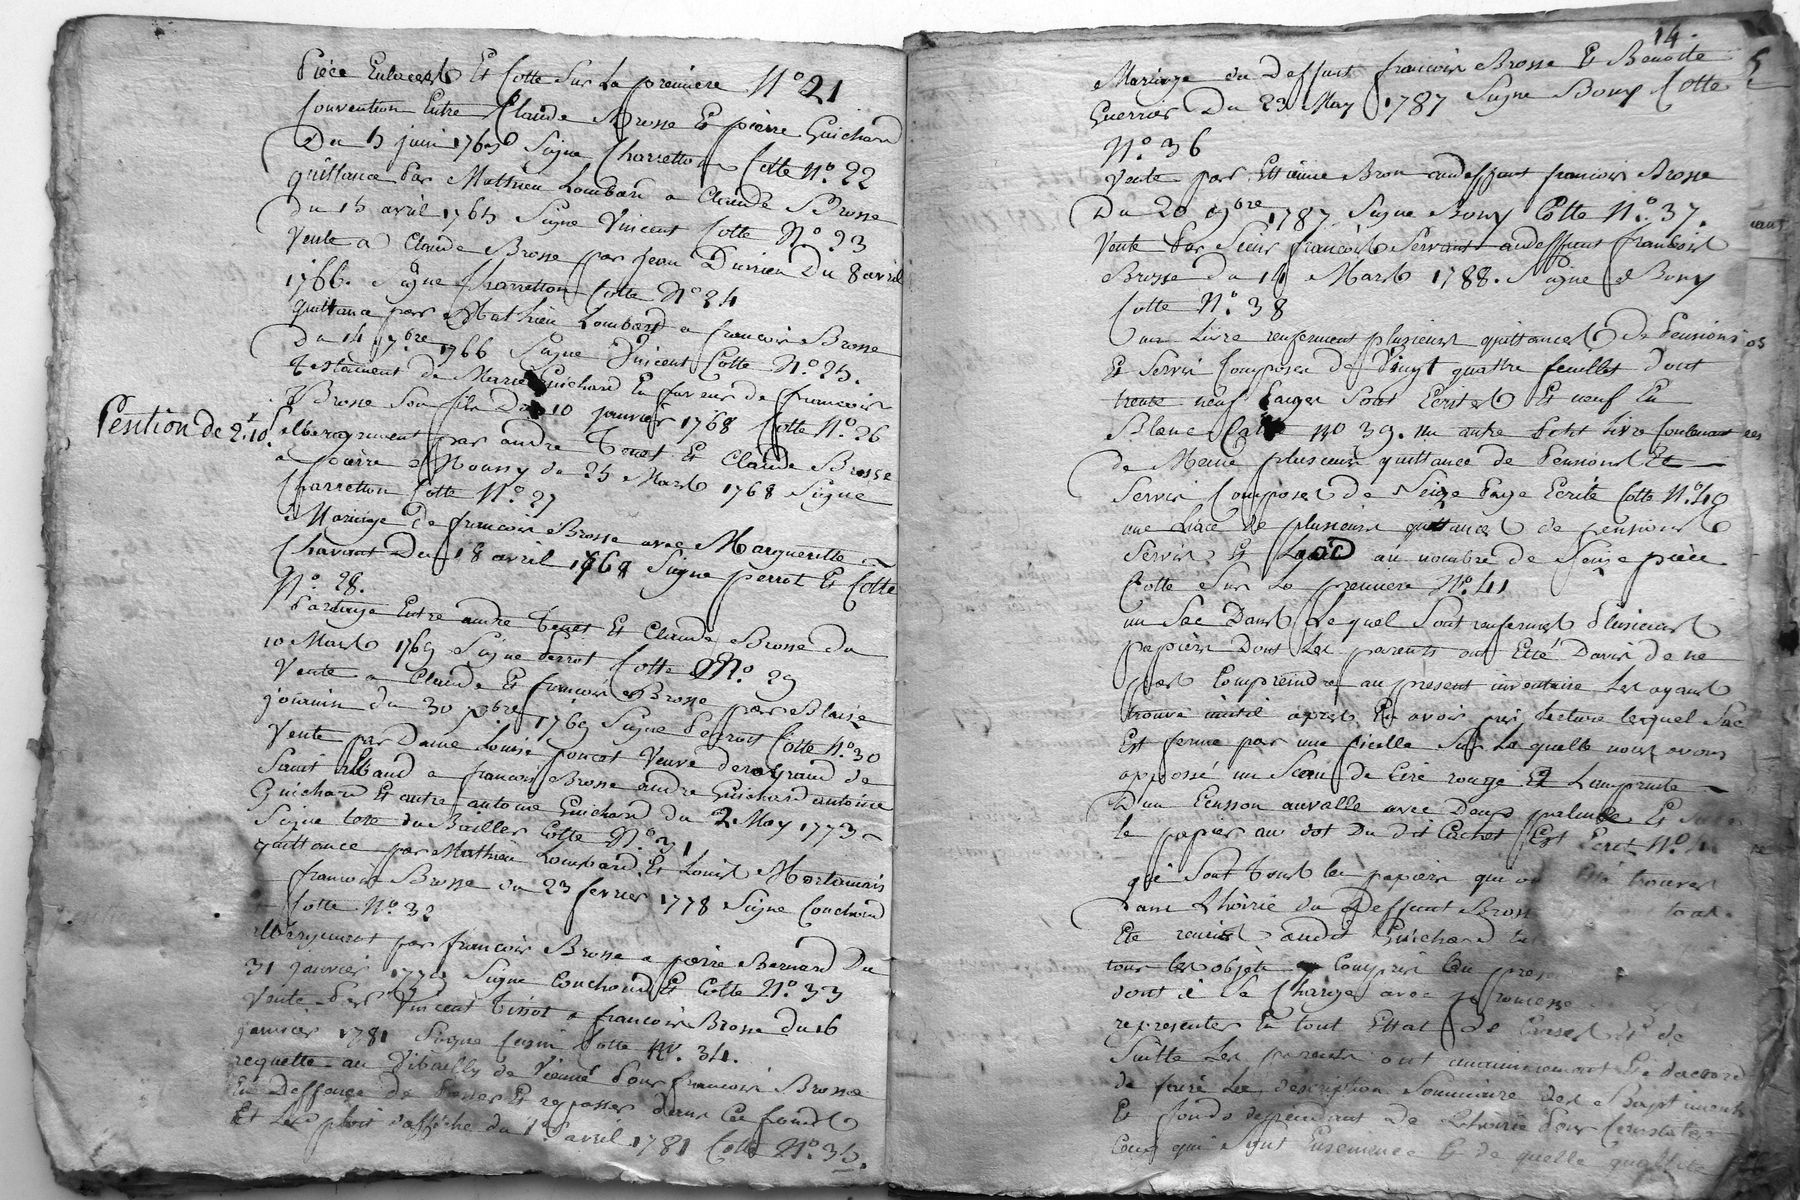 pièce Enlacest Et Cotte Sur La premiere N° 21
Convention Entre Claude Brosse Et pierre Guichard
Du 5 juin 1765 Signe Charretton Cotte N° 22
quittance par Mathieu Lombard a Claude Brosse
du 15 avril 1765 Signe Vincent Cotte N° 23
Vente a Claude Brosse par jean Durieu Du 8 avril
1766. Signe Charretton Cotte N° 24
quittance par Mathieu Lombard a francois Brosse
Du 14 7bre 1766 Signe Vincent Cotte N° 25.
testament de Marie Guichard En faveur de francois
Brosse Son fils Du 10 janvier 1768 Cotte N° 26
Pention de 2. 10.
albergement par andre Tenet Et Claude Brosse
a pierre Moussy du 25 Mars 1768 Signe
Charretton Cotte N° 27
Mariage De francois Brosse avec Margueritte
Charvat Du 18 avril 1769 Signe perrot Et Cotte
N° 28.
Partage Entre andre Tenet Et Claude Brosse du
10 Mars 1769 Signe perrot Cotte N° 29
Vente a Claude Et francois Brosse par Blaise
jouvain du 30 9bre 1769 Signe perrot Cotte N° 30
Vente par Dame Louise poncet Veuve de de
Saint alband a francois Brosse andre Guichard antoine
Guichard Et autre antoine Guichard du 2 May 1773
Signe Cotte N° 31
quittance par Mathieu Lombard Et Louis Mortamais
francois Brosse du 23 fevrier 1778 Signe Couchoud
Cotte N° 32
albergement par francois Brosse a pierre Bernard Du
31 janvier 1779 Signe Couchoud Et Cotte N° 33
Vente par Vincent Tissot a francois Brosse du 16
janvier 1781 Signe Cotte N°. 34.
requette au Vibailly de Vienne pour francois Brosse
En Deffence de passer Et repasser dans Ces fonds
Et Les ploit d'affiche du 1er avril 1781 Cotte N° 35.
14.
Mariage du Deffunt francois Brosse Et Benoite
Guerrier Du 23 May 1787 Signe Bony Cotte
N° 36
Vente par Ettienne Bron audeffunt francois Brosse
Du 20 9bre 1787 Signe Bony Cotte N° 37.
Vente par Sieur francois Servant audeffunt francois
Brosse du 14 Mars 1788. Signe Bony
Cotte N° 38
un Livre renferment plusieurs quittances De Pensions
Et Servis Composée De Vingt quattre feuillet dont
trente neuf pages Sont Ecrites Et neuf En
Blanc Cotte N° 39. un autre petit livre Contenant
de Meme plusieurs quittance de Pensions Et
Servis Composé de Seize page Ecrité Cotte N° 40
une Liace de plusieurs quittances de pensions
Servis Et au nombre de Seize pièce
Cotte Sur La premiere N° 41
un Sac Dans Lequel Sont renfermés plusieurs
papiers Dont Les parents ont Eté Davis de ne
pas Compreindre au present inventaire Les ayant
trouvé inutil après En avoir pris lecture lequel Sac
Est fermé par une ficelle Sur La quelle nous avons
apposé un Sceau de Cire rouge Et Lamprinte
D'un Ecusson auvalle avec Deux palmes Et
le papier au dot Du dit Cachet Est Ecrit N°
qui Sont Tous les papiers qui Eté trouver
dans Lhoirie du Deffunt Brosse
Eté remis audit Guichard
tous les objets Compris au
dont il Se Charge avec promesse
representer En tout Ettat de
Suitte Les parents ont unanimement Eté daccord
de faire La description Sommaire des Batiments
Et fonds dependant de Lhoirie pour Constater
Ceux qui Sont Ensemencé Et de quelle quallité